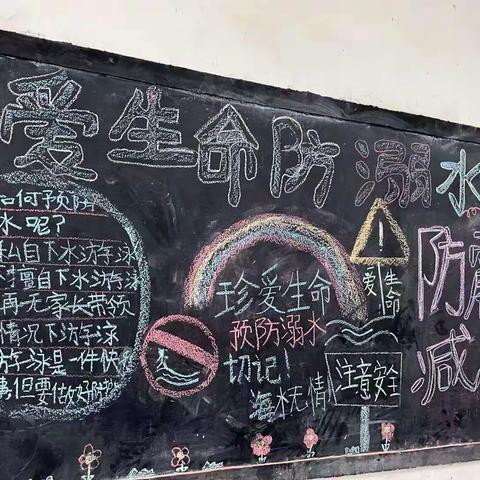 爱生命防溺水
如何预防
水呢?
私自下水游泳
擅自下水游泳
再无家长带领
情况下游泳
游泳是一件快
但要做好防
珍爱生命
预防溺水
切记!
海水无情
爱生命
注意安全
防震
减